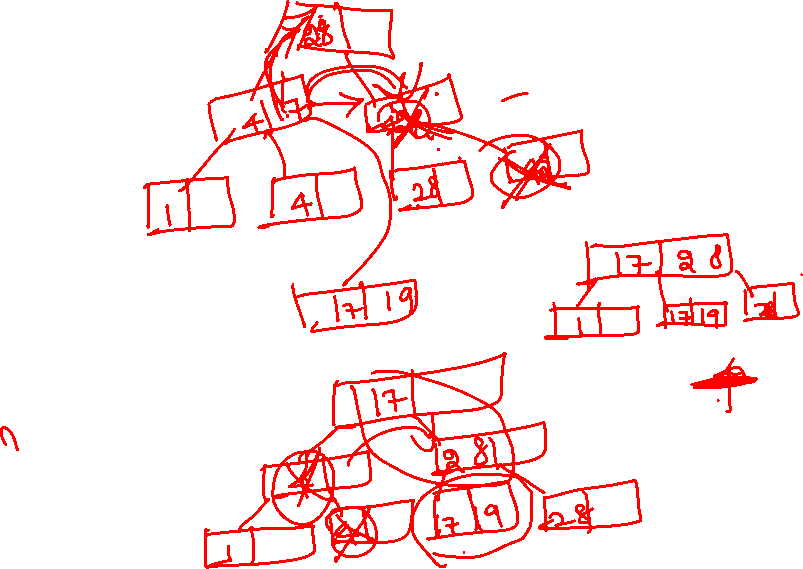 28
4 17
1 4 28
17 19
17 28
1 17 19
17
28
1 17 9 28